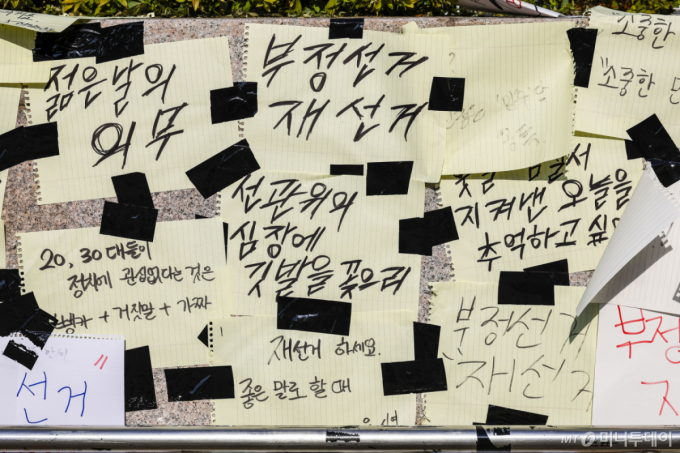 젊은날의
의무
부정선거
재선거
소중한
"소중한
선관위의
심장에
깃발을 꽂으리
지켜낸 오늘을
추억하고 싶
20, 30대들이
정치에 관심없다는 것은
+ 거짓말 + 가짜
재선거 하세요.
좋은 말로 할 때
부정선거
재선거
선거
부정
머니투데이